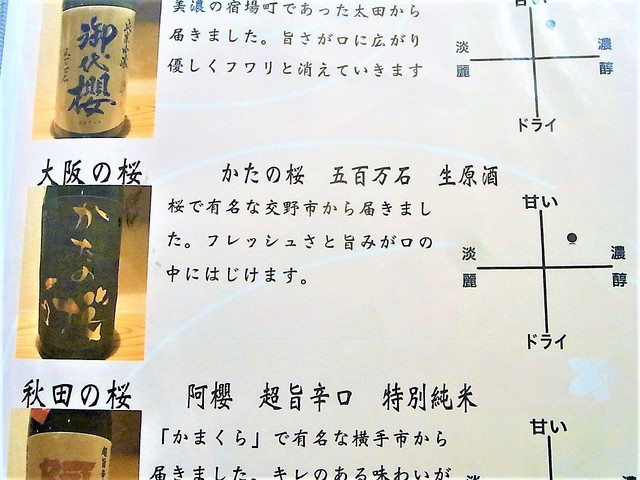 美濃の宿場町であった太田から
届きました。旨さが口に広がり
優しくフワリと消えていきます
御代櫻
甘い
淡麗
濃醇
ドライ
大阪の桜
かたの桜 五百万石 生原酒
桜で有名な交野市から届きまし
た。フレッシュさと旨みが口の
中にはじけます。
かたの桜
甘い
淡麗
濃醇
ドライ
秋田の桜
阿櫻 超旨辛口 特別純米
「かまくら」で有名な横手市から
届きました。キレのある味わいが
超旨辛
甘い